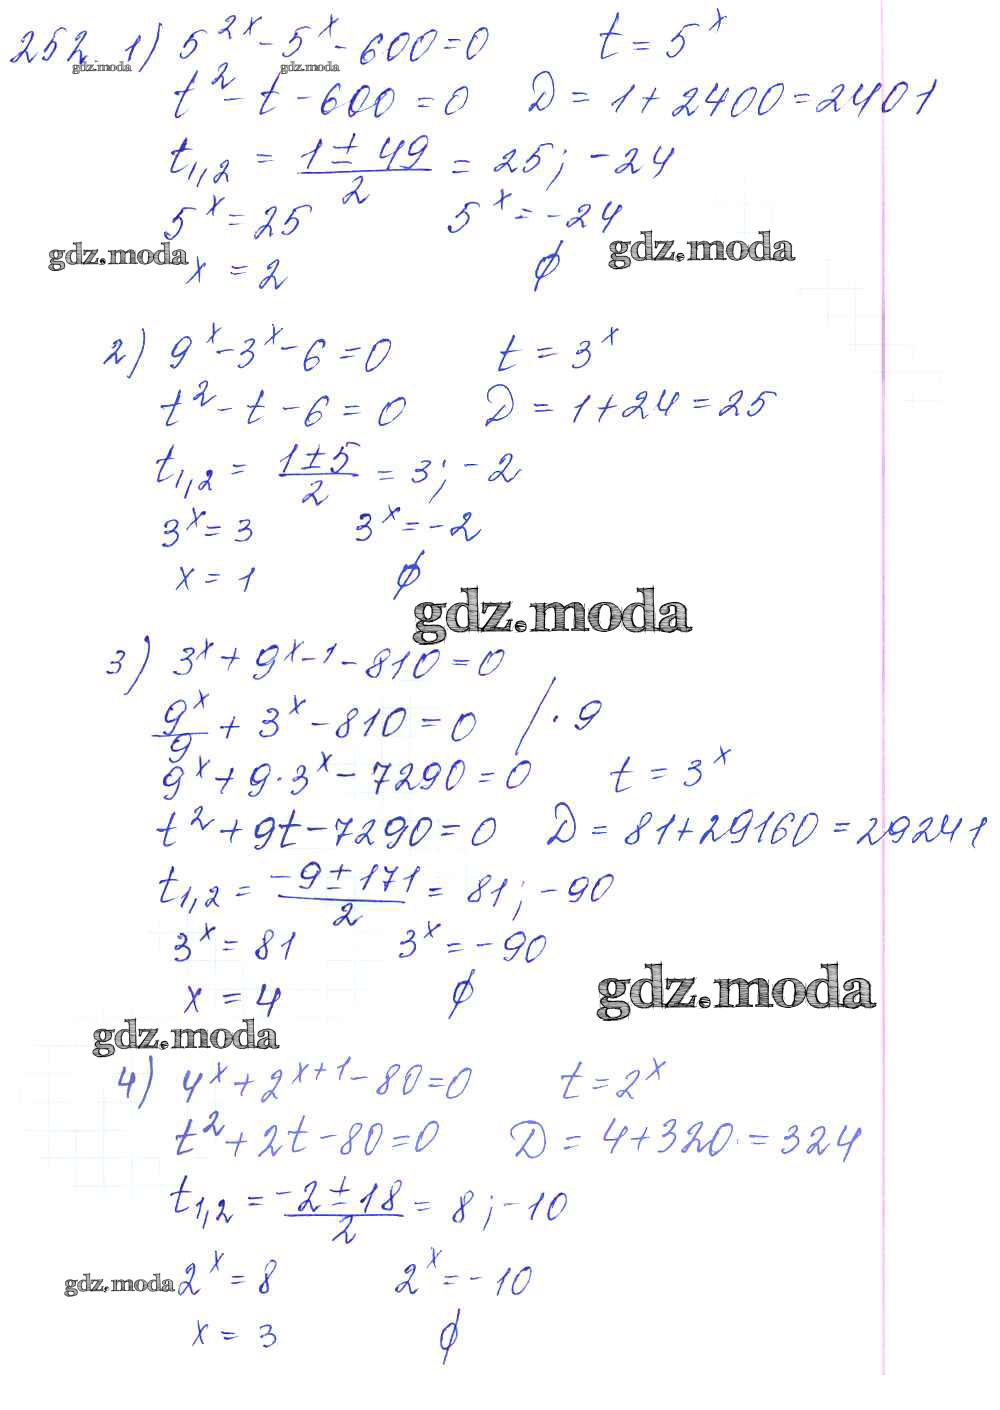 252 1) 5^{2x} - 5^x - 600 = 0   t = 5^x
gdz.moda   gdz.moda
t^2 - t - 600 = 0   D = 1 + 2400 = 2401
t_{1,2} = \frac{1 ± 49}{2} = 25; -24
5^x = 25   5^x = -24
gdz.moda   gdz.moda
x = 2   ϕ
2) 9^x - 3^x - 6 = 0   t = 3^x
t^2 - t - 6 = 0   D = 1 + 24 = 25
t_{1,2} = \frac{1 ± 5}{2} = 3; -2
3^x = 3   3^x = -2
x = 1   ϕ
gdz.moda
3) 3^x + 9^{x-1} - 810 = 0
\frac{9^x}{9} + 3^x - 810 = 0 / · 9
9^x + 9 · 3^x - 7290 = 0   t = 3^x
t^2 + 9t - 7290 = 0   D = 81 + 29160 = 29241
t_{1,2} = \frac{-9 ± 171}{2} = 81; -90
3^x = 81   3^x = -90
x = 4   ϕ
gdz.moda
gdz.moda
4) 4^x + 2^{x+1} - 80 = 0   t = 2^x
t^2 + 2t - 80 = 0   D = 4 + 320 = 324
t_{1,2} = \frac{-2 ± 18}{2} = 8; -10
gdz.moda 2^x = 8   2^x = -10
x = 3   ϕ